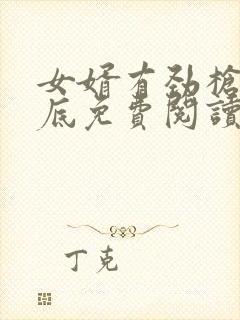 女婿有勁槍
底免費閱讀
丁克